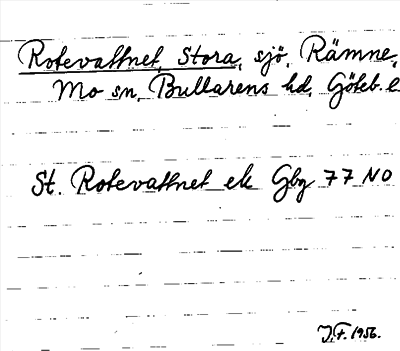 Rotevattnet, Stora, sjö, Rämne,
Mo sn, Bullarens hd, Göteb. l
St. Rotevattnet ek Gbg 77 NO
J.F. 1956.